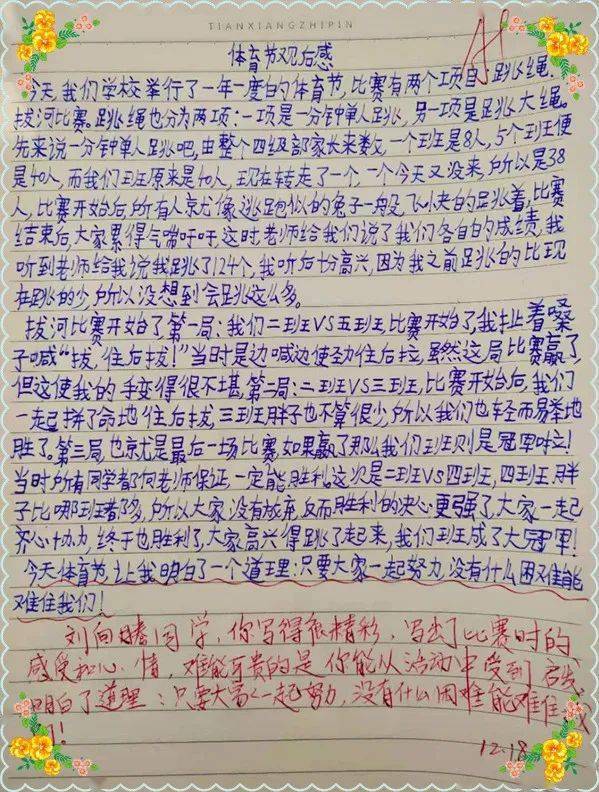 TIANXIANGZHIPIN
体育节观后感
今天,我们学校举行了一年一度的体育节,比赛有两个项目:跳绳、
拔河比赛。跳绳也分为两项:一项是一分钟单人跳,另一项是跳大绳。
先来说一分钟单人跳吧,由整个四级部家长来数,一个班是8人,5个班便
是40人,而我们班原来是40人,现在转走了一个,一个今天又没来,所以是38
人,比赛开始后,所有人就像逃跑似的兔子一般,飞快的跳着,比赛
结束后,大家累得气喘吁吁,这时,老师给我们说了我们各自的成绩,我
听到老师给我说我跳了124个,我听后十分高兴,因为我之前跳的比现
在跳的少,所以没想到会跳这么多。
拔河比赛开始了,第一局:我们二班VS五班,比赛开始了,我扯着嗓
子喊“拔,住后拔!”当时是边喊边使劲住后拉,虽然这局比赛赢了,
但这使我的手变得很不堪,第二局:二班VS三班,比赛开始后,我们
一起拼了命地住后拔,三班胖子也不算很少,所以我们也轻而易举地
胜了。第三局也就是最后一场比赛,如果赢了那么我们班则是冠军啦!
当时所有同学都向老师保证一定能胜利。这次是二班VS四班,四班胖
子比哪班都多,所以大家没有放充,反而胜利的决心更强了,大家一起
齐心协力,终于也胜利了,大家高兴得跳了起来,我们班成了大冠军!
今天体育节,让我明白了一个道理:只要大家一起努力,没有什么困难能
难住我们!
刘向腾同学,你写得很精彩,写出了比赛时的
感受和心情,难能可贵的是你能从活动中受到启发
明白了道理:只要大家一起努力,没有什么困难能难住我
们!
12.18